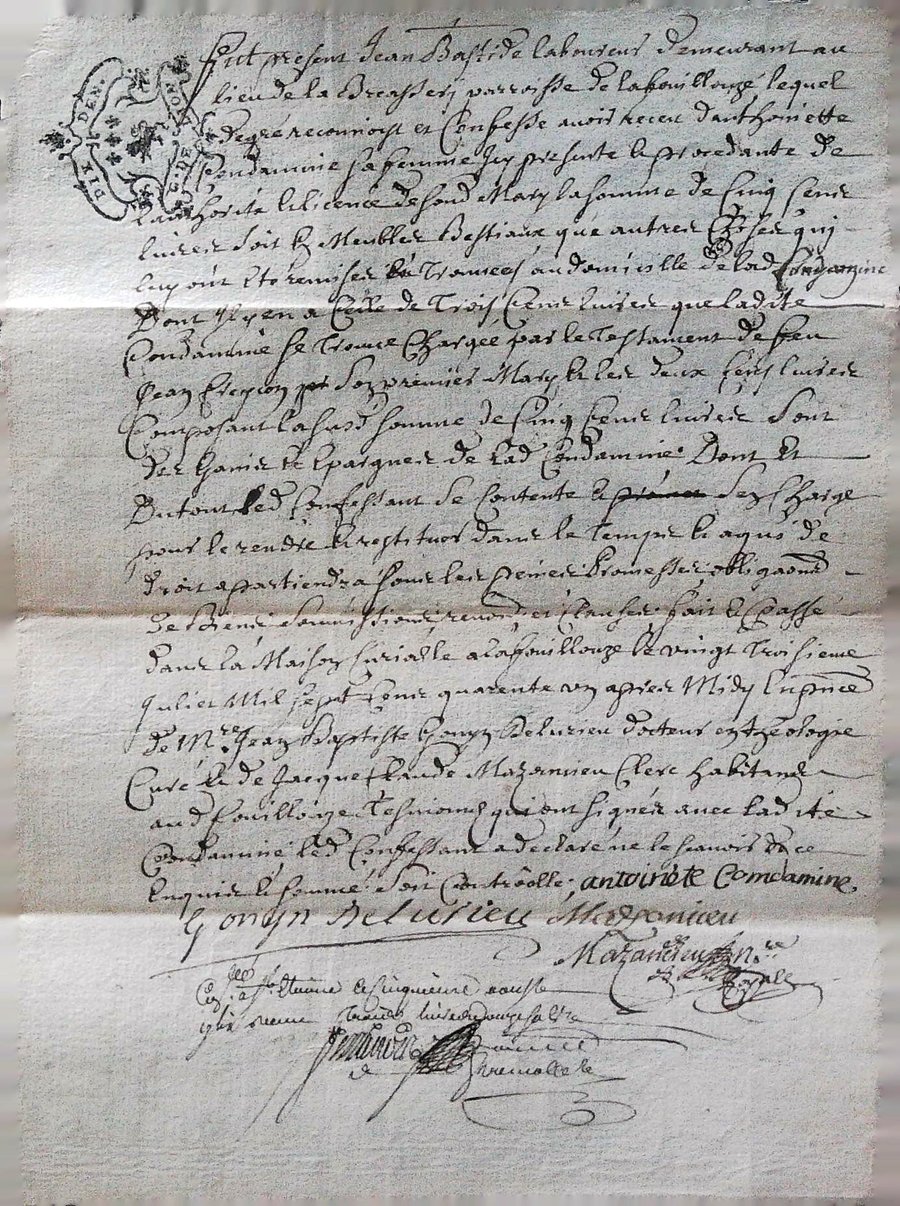 DIX DEN.
G. DE LYON
Fut present Jean Bastide laboureur demeurant au
lieu de la Breassery parroisse de lafouillouze lequel
de gré reconnoist et Confesse avoir receu d'anthoinette
Condamine sa femme icy presente et procedante de
lauthorité et licence desond Mary la somme de Cinq Cens
livres soit En Meubles Bestiaux que autres Choses quy
luy ont Eté remises Et Trouvees au domicille de lad Condamine
Dont Il y en a Celle de Trois Cens livres que ladite
Condamine se Trouve Chargée par le Testament de feu
Jean son premier Mary Et les deux Cens livres
Composant lasusd somme de Cinq Cens livres sont
des Gains Et Epargnes de lad Condamine. Dont Et
Du tout led Confessant se Contente Et sen Charge
pour le rendre Et restituer dans le Temps Et a qui de
droit appartiendra sous les peines Promesses obligaons
de Biens soumissions renons et Clauses. fait Et Passé
dans la Maison Curialle a lafouillouze le vingt Troisieme
Juliet Mil sept Cens quarente un apres Midy En pnce
de Mre Jean Baptiste Gonyn Delurieu docteur en Theologie
Curé Et de Jacque Claude Mazenieu Clerc habitans
aud Fouillouze Tesmoins qui ont signés avec ladite
Condamine led Confessant a declaré ne le scavoir de ce
Enquis Et sommé. soit Controolle. antoinete Comdamine.
Gonyn Delurieu Mazenieu
Nre
Royalle
a St Etienne le Cinquieme aoust